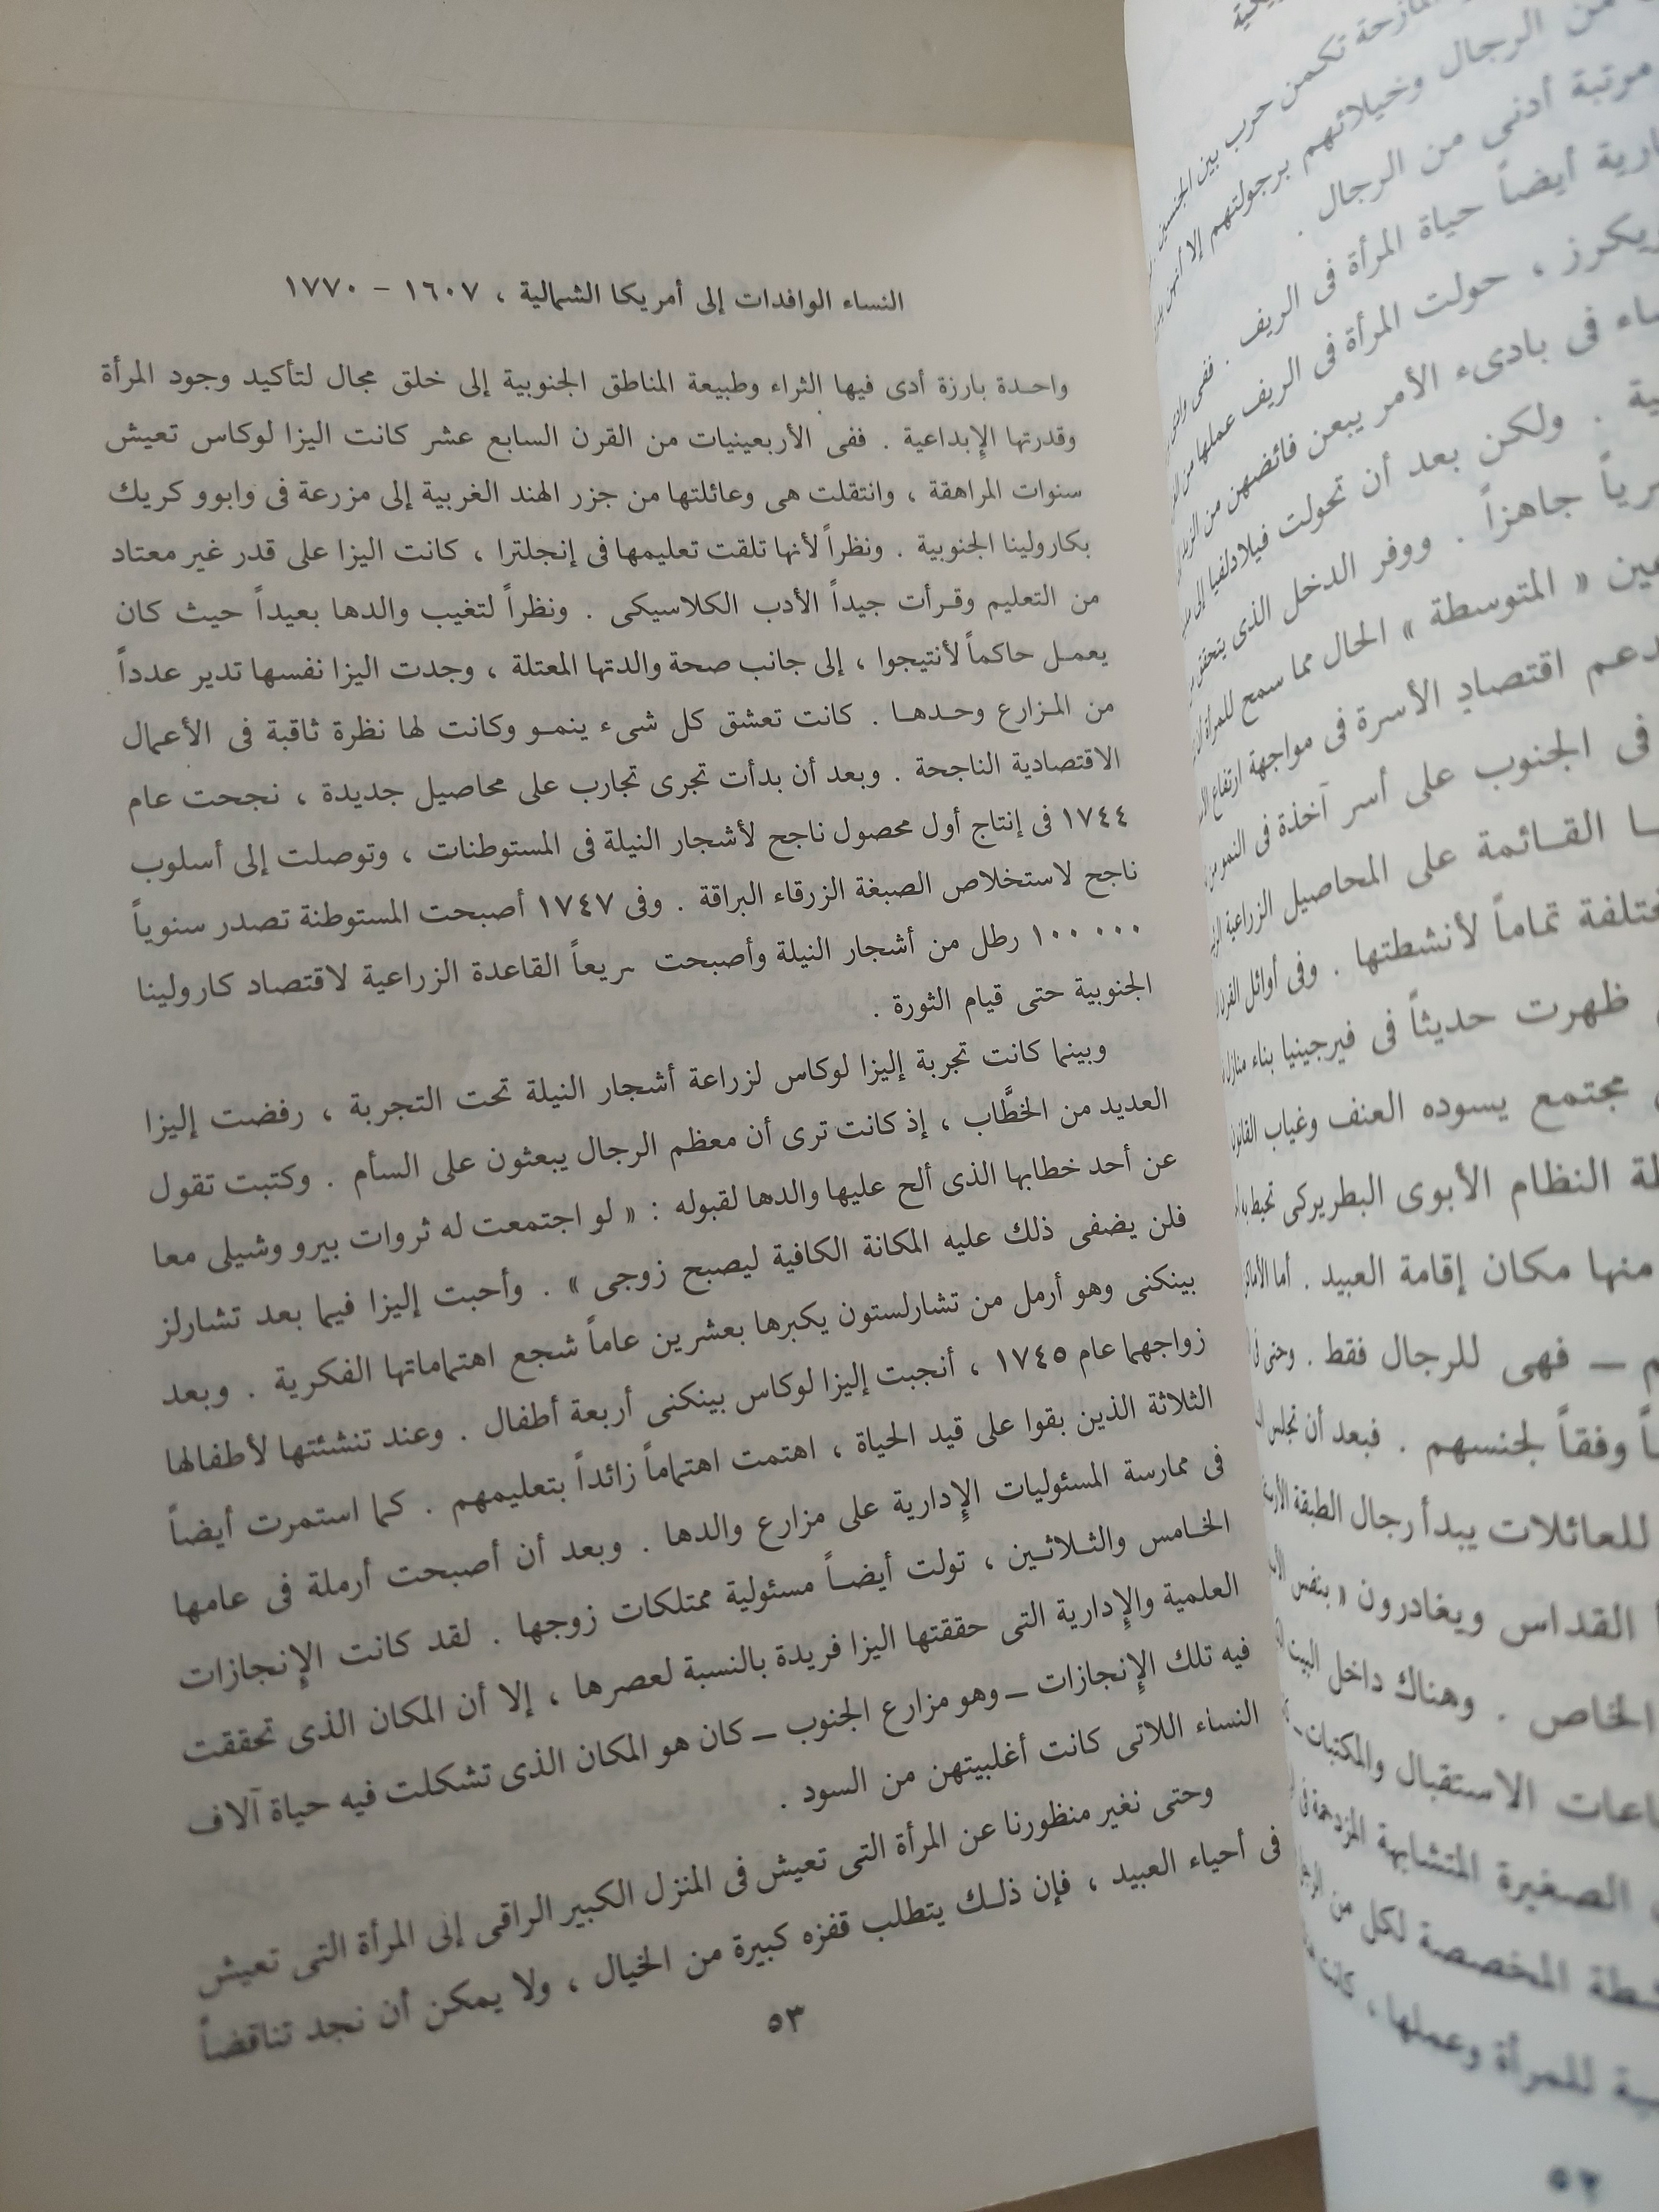 النساء الوافدات إلى أمريكا الشمالية ، ١٦٠٧ – ١٧٧٠
واحدة بارزة أدى فيها الثراء وطبيعة المناطق الجنوبية إلى خلق مجال لتأكيد وجود المرأة
وقدرتها الإبداعية . ففى الأربعينيات من القرن السابع عشر كانت اليزا لوكاس تعيش
سنوات المراهقة ، وانتقلت هى وعائلتها من جزر الهند الغربية إلى مزرعة فى وابوو كريك
بكارولينا الجنوبية . ونظراً لأنها تلقت تعليمها فى إنجلترا ، كانت اليزا على قدر غير معتاد
من التعليم وقرأت جيداً الأدب الكلاسيكى . ونظراً لتغيب والدها بعيداً حيث كان
يعمل حاكماً لأنتيجوا ، إلى جانب صحة والدتها المعتلة ، وجدت اليزا نفسها تدير عدداً
من المزارع وحدها . كانت تعشق كل شىء ينمو وكانت لها نظرة ثاقبة فى الأعمال
الاقتصادية الناجحة . وبعد أن بدأت تجرى تجارب على محاصيل جديدة ، نجحت عام
١٧٤٤ فى إنتاج أول محصول ناجح لأشجار النيلة فى المستوطنات ، وتوصلت إلى أسلوب
ناجح لاستخلاص الصبغة الزرقاء البراقة . وفى ١٧٤٧ أصبحت المستوطنة تصدر سنوياً
١٠٠٠٠٠ رطل من أشجار النيلة وأصبحت سريعاً القاعدة الزراعية لاقتصاد كارولينا
الجنوبية حتى قيام الثورة .
وبينما كانت تجربة إليزا لوكاس لزراعة أشجار النيلة تحت التجربة ، رفضت إليزا
العديد من الخطَّاب ، إذ كانت ترى أن معظم الرجال يبعثون على السأم . وكتبت تقول
عن أحد خطابها الذى ألح عليها والدها لقبوله : « لو اجتمعت له ثروات بيرو وشيلى معا
فلن يضفى ذلك عليه المكانة الكافية ليصبح زوجى » . وأحبت إليزا فيما بعد تشارلز
بينكنى وهو أرمل من تشارلستون يكبرها بعشرين عاماً شجع اهتماماتها الفكرية . وبعد
زواجهما عام ١٧٤٥ ، أنجبت إليزا لوكاس بينكنى أربعة أطفال . وعند تنشئتها لأطفالها
الثلاثة الذين بقوا على قيد الحياة ، اهتمت اهتماماً زائداً بتعليمهم . كما استمرت أيضاً
فى ممارسة المسئوليات الإدارية على مزارع والدها . وبعد أن أصبحت أرملة فى عامها
الخامس والثلاثين ، تولت أيضاً مسئولية ممتلكات زوجها . لقد كانت الإنجازات
العلمية والإدارية التى حققتها اليزا فريدة بالنسبة لعصرها ، إلا أن المكان الذى تحققت
فيه تلك الإنجازات – وهو مزارع الجنوب – كان هو المكان الذى تشكلت فيه حياة آلاف
النساء اللاتى كانت أغلبيتهن من السود .
وحتى نغير منظورنا عن المرأة التى تعيش فى المنزل الكبير الراقى إلى المرأة التى تعيش
فى أحياء العبيد ، فإن ذلك يتطلب قفزه كبيرة من الخيال ، ولا يمكن أن نجد تناقضاً
٥٣
تكمن حرب بين الجنسين
من الرجال وخيلائهم برجولتهم إلا
مرتبة أدنى من الرجال .
أيضاً حياة المرأة فى الريف . ففى
، حولت المرأة فى الريف عملها من
فى بادىء الأمر يبعن فائضهن من
. ولكن بعد أن تحولت فيلادلفيا إلى
جاهزاً . ووفر الدخل الذى يتحقق
« المتوسطة » الحال مما سمح للمرأة
اقتصاد الأسرة فى مواجهة ارتفاع
فى الجنوب على أسر آخذة فى النمو من
القائمة على المحاصيل الزراعية
تماماً لأنشطتها . وفى أوائل القرن
ظهرت حديثاً فى فيرجينيا بناء منازل
مجتمع يسوده العنف وغياب القانون
النظام الأبوى البطريركى تحيط
منها مكان إقامة العبيد . أما الأماكن
– فهى للرجال فقط . وحتى فى
وفقاً لجنسهم . فبعد أن تجلس
للعائلات يبدأ رجال الطبقة
القداس ويغادرون « بنفس
الخاص . وهناك داخل
الاستقبال والمكتبات –
الصغيرة المتشابهة المزدحمة
المخصصة لكل من
للمرأة وعملها ، كانت
٥٢